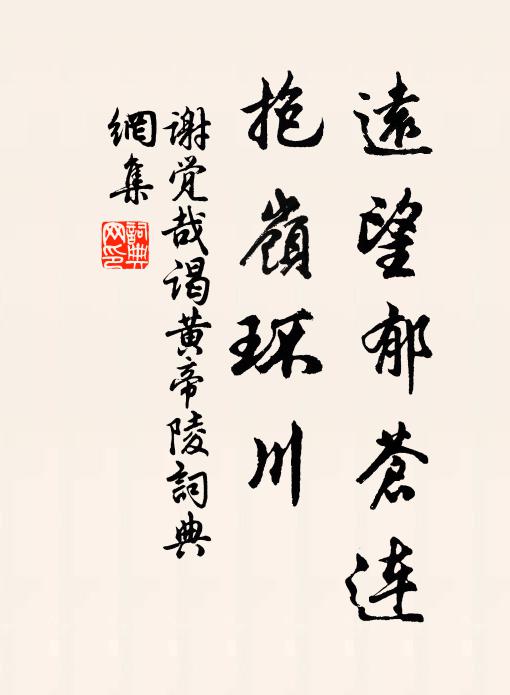 遠望郁蒼连
抱嶺环川
谢觉哉谒黄帝陵詞典
網集
詞典网印